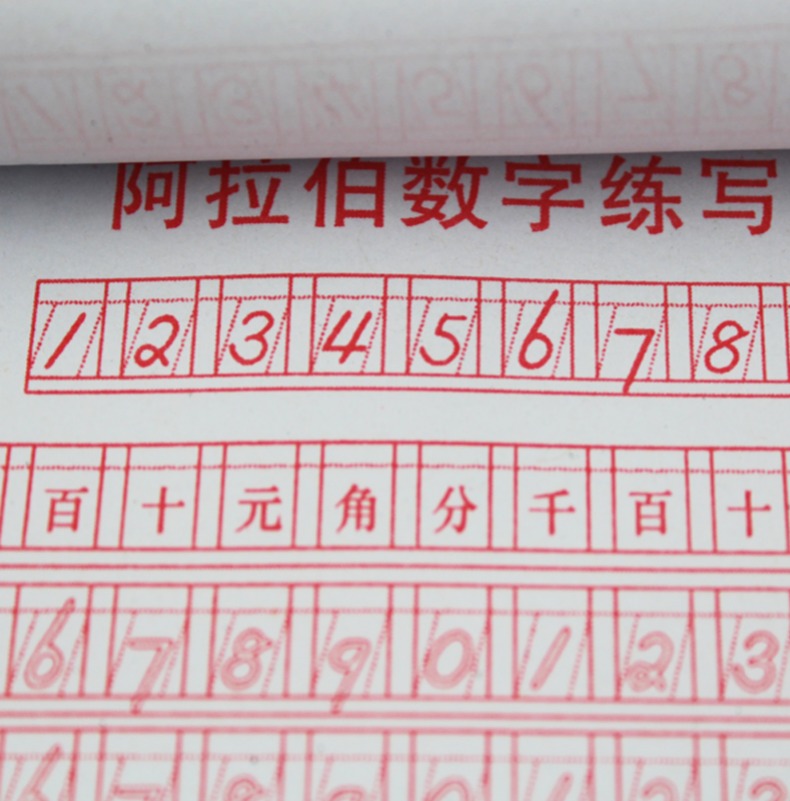 阿拉伯数字练写
1 2 3 4 5 6 7 8
百 十 元 角 分 千 百 十
6 7 8 9 0 1 2 3